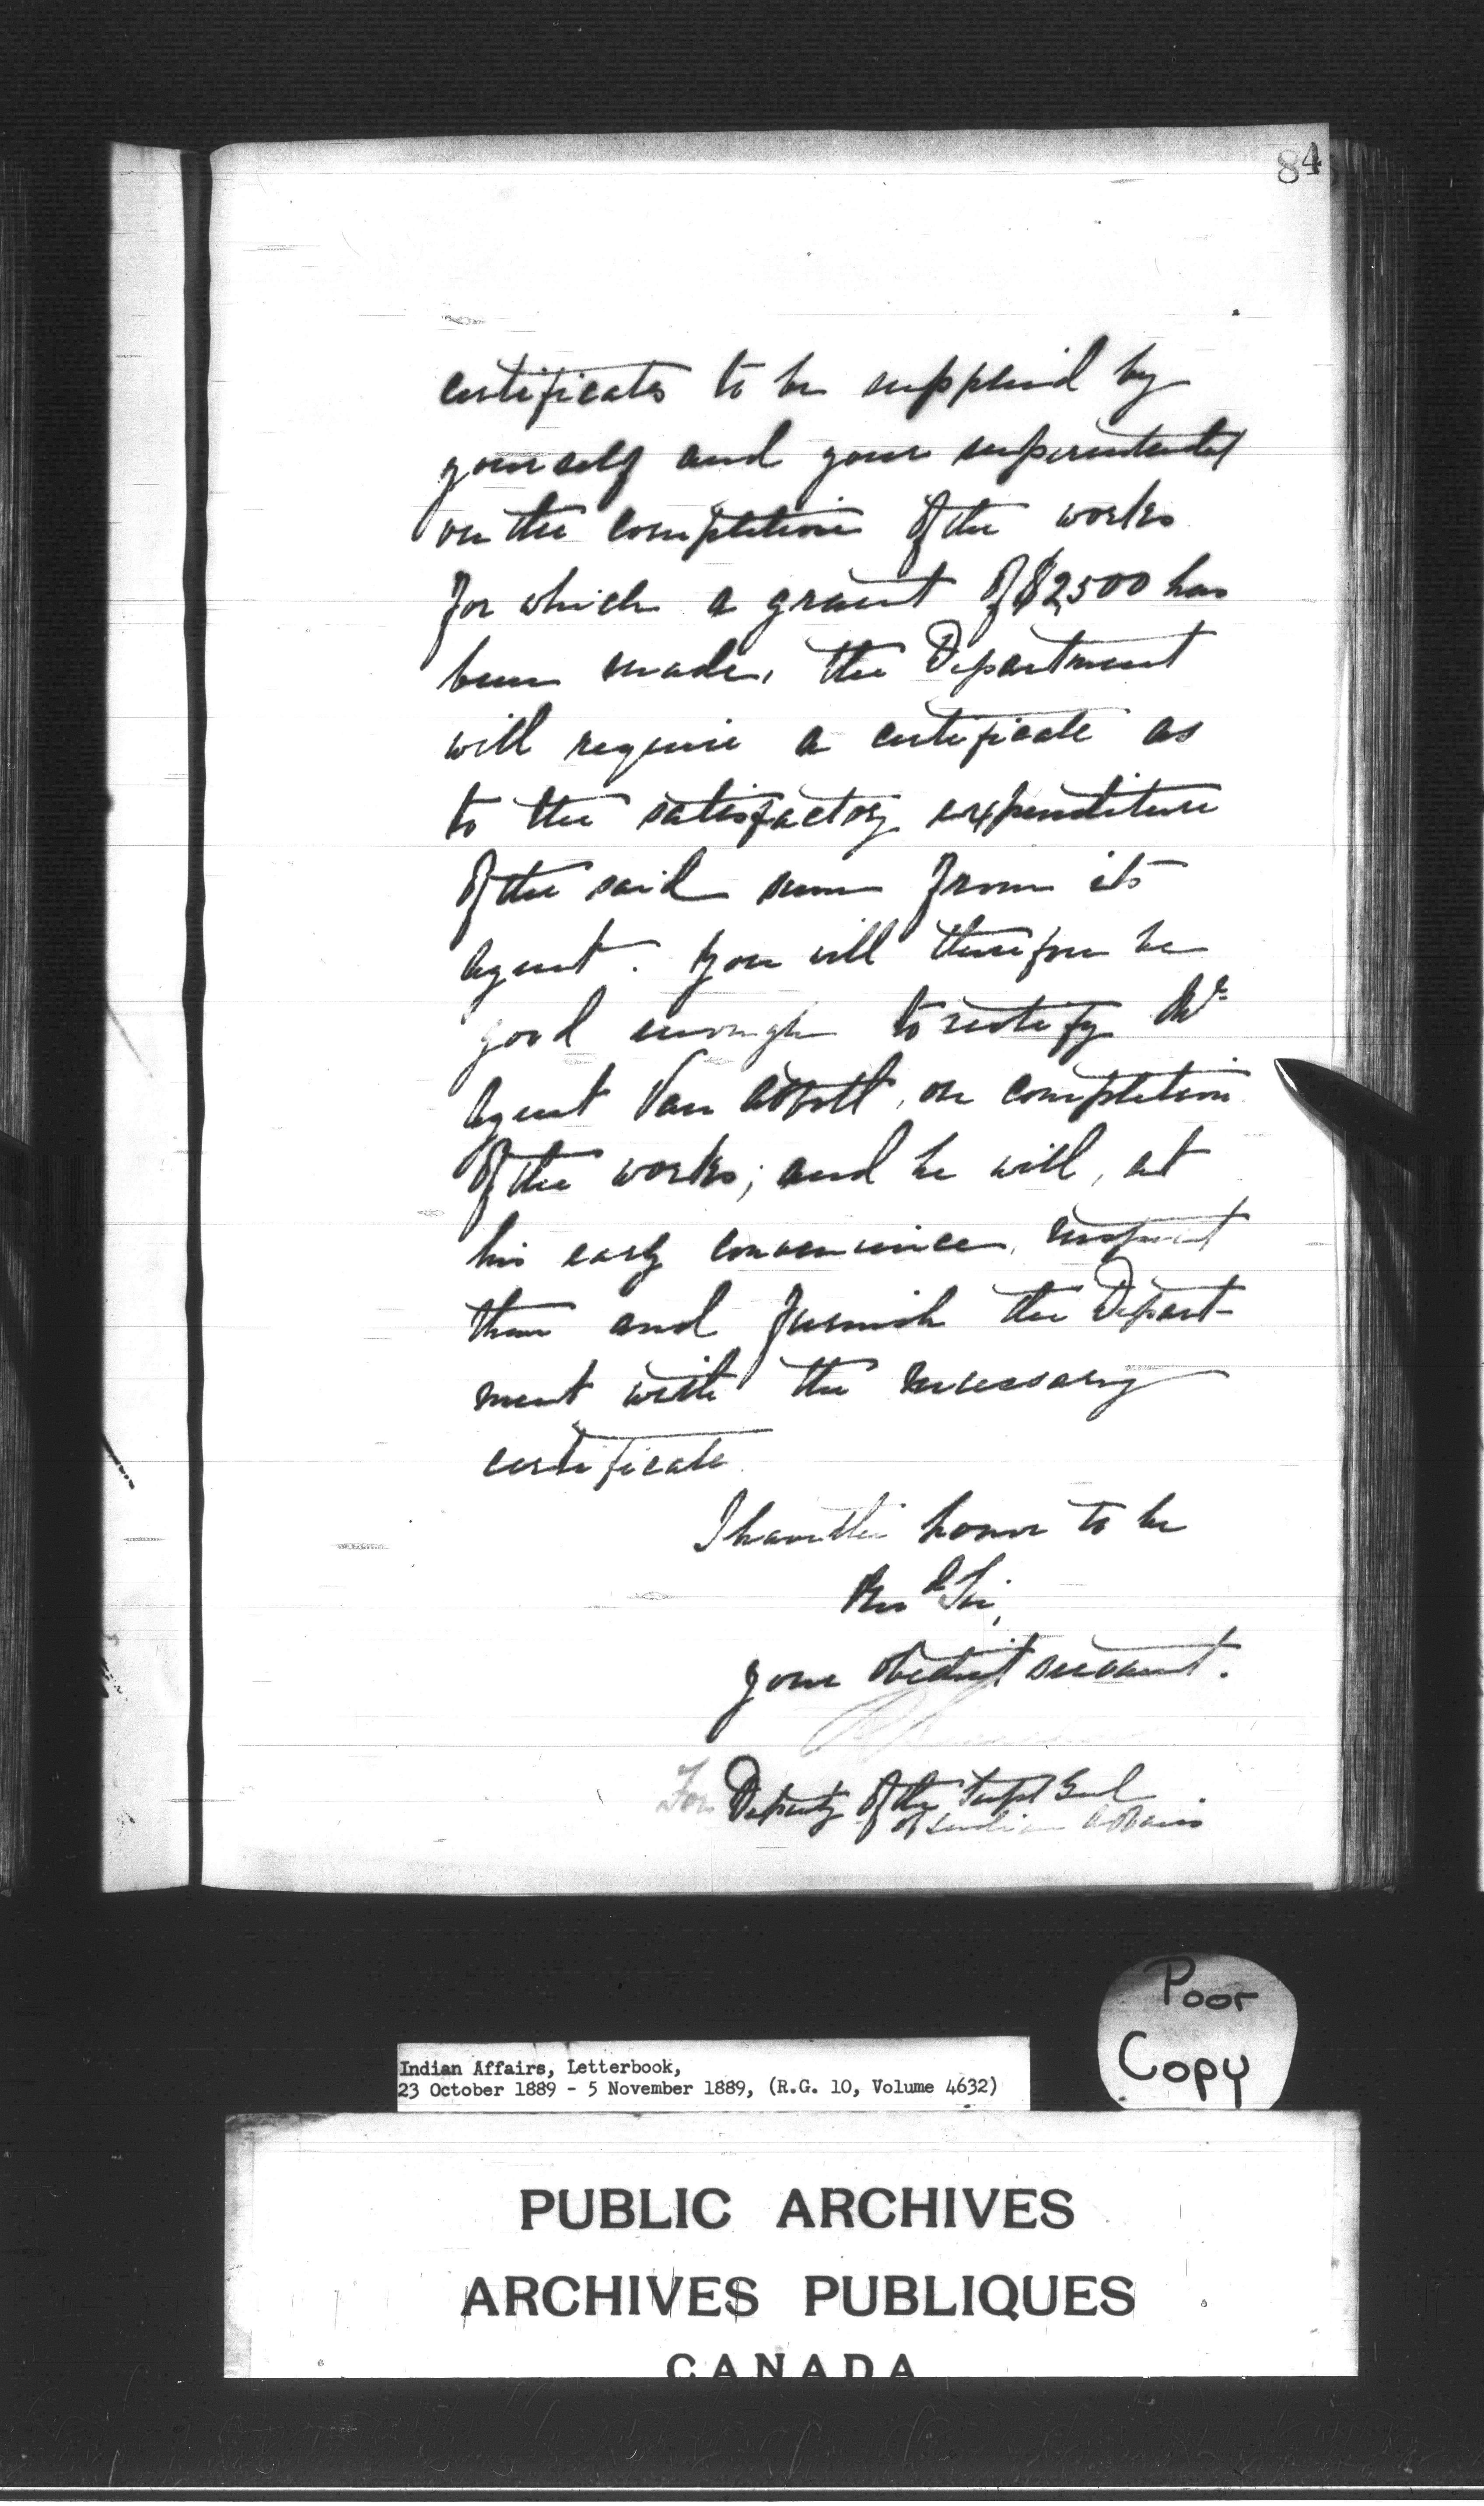 84
certificates to be supplied by
yourself and your superintendent
on the completion of the works
for which a grant of $2,500 has
been made, the Department
will require a certificate as
to the satisfactory expenditure
of the said sum from its
Agent. You will therefore be
good enough to notify Mr
Agent Van Abbott, on completion
of the works; and he will, at
his early convenience, inspect
them and furnish the Depart-
ment with the necessary
certificate.
I have the honor to be
Revd Sir,
your obedient servant.
For Deputy of the Supt Genl
of Indian Affairs
Poor
Copy
Indian Affairs, Letterbook,
23 October 1889 - 5 November 1889, (R.G. 10, Volume 4632)
PUBLIC ARCHIVES
ARCHIVES PUBLIQUES
CANADA